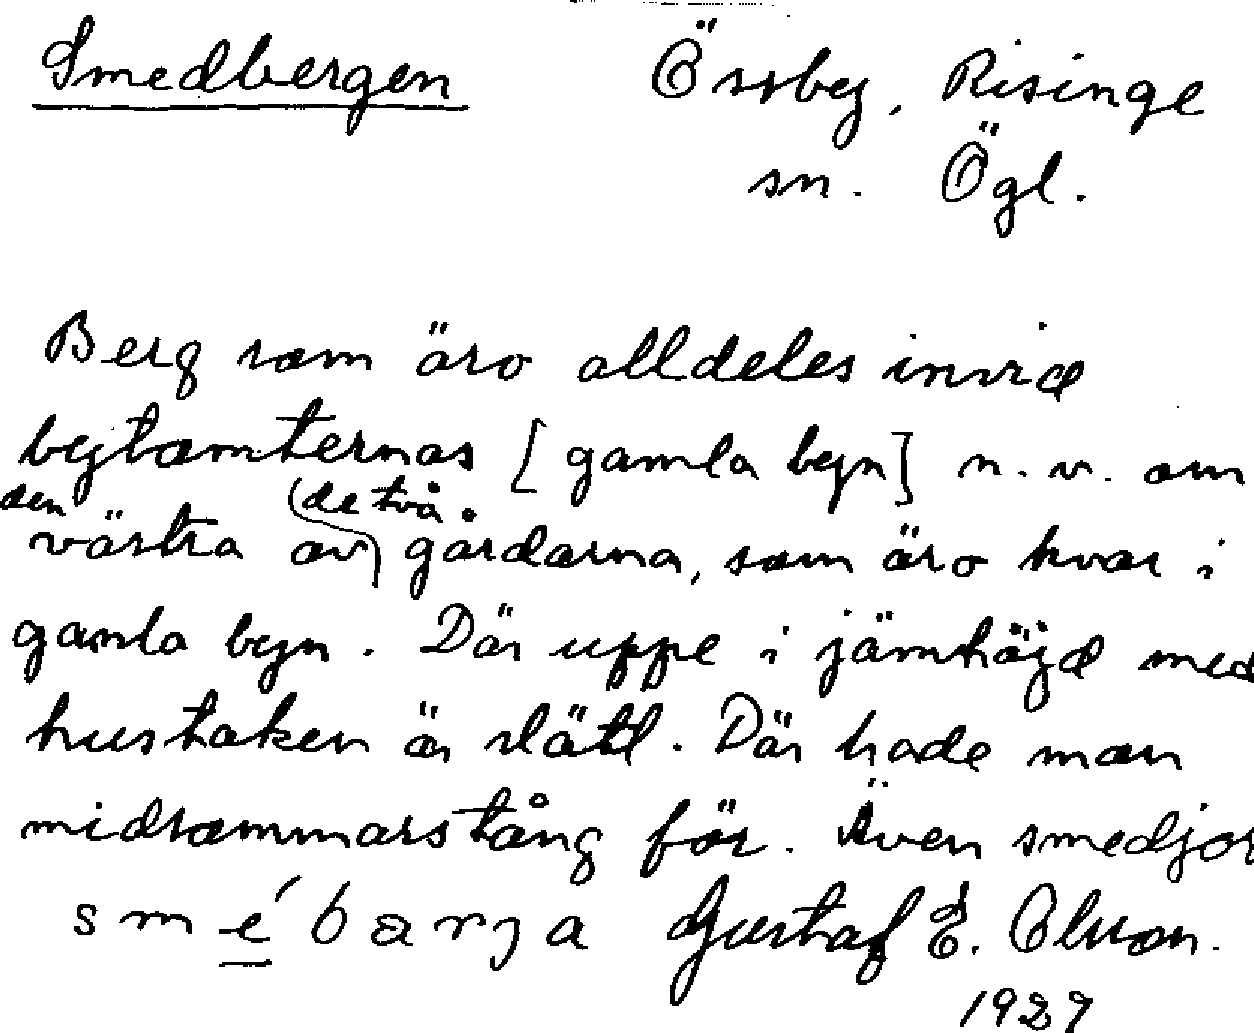 Smedbergen Össby, Risinge
sn. Ögl.
Berg som äro alldeles invid
bytomternas [gamla byn] n. v. om
den västra av (de två) gårdarna, som äro kvar i
gamla byn. Där uppe i jämhöjd med
hustaken är slätt. Där hade man
midsommarstång för. Även smedjor
Gustaf E. Olson.
1927